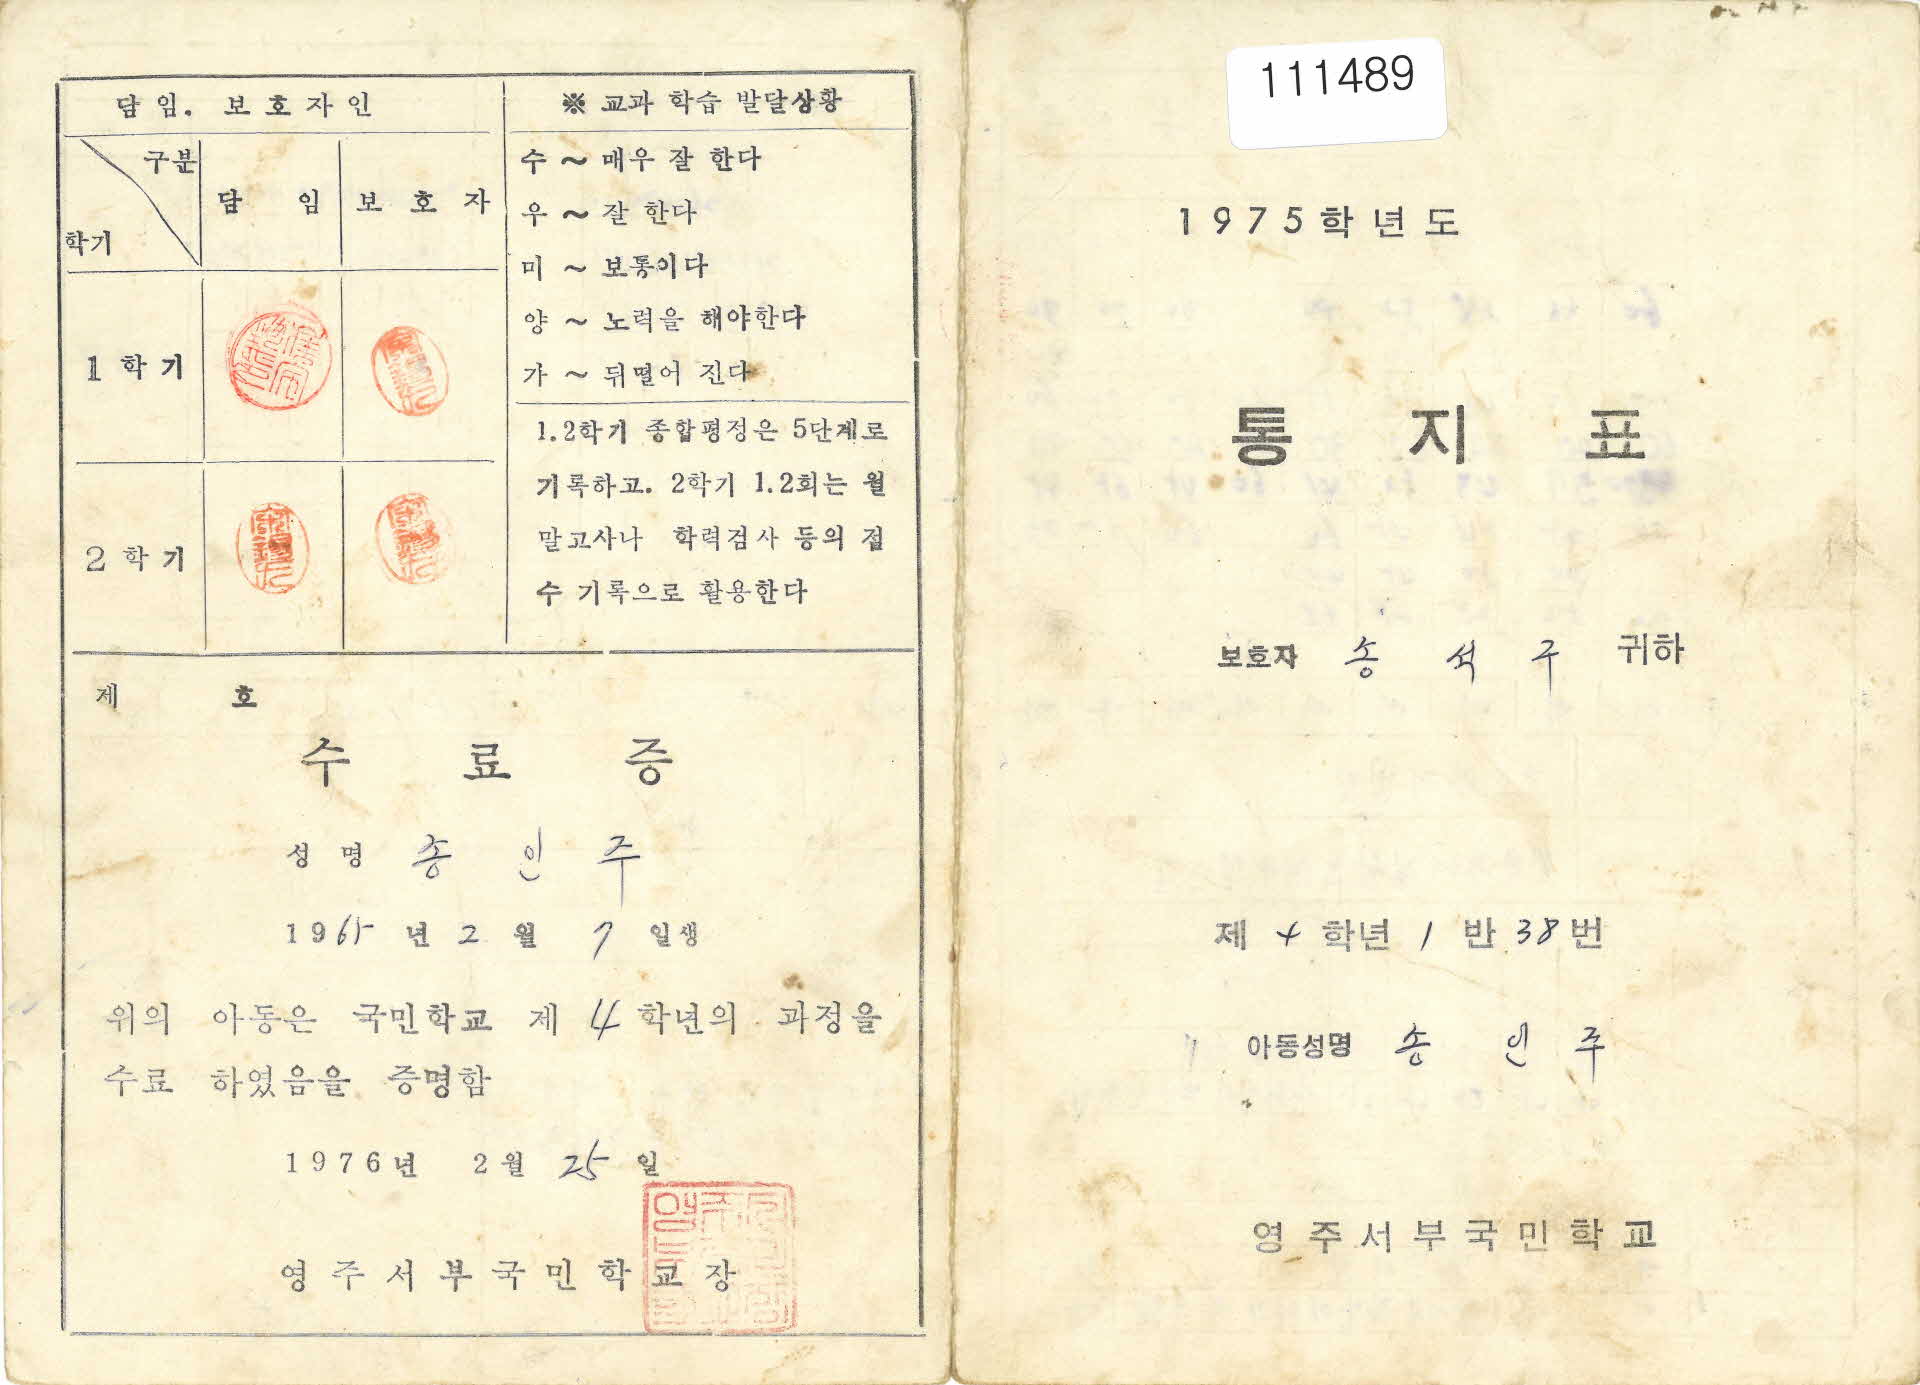 담 임. 보 호 자 인
구분
담 임
보 호 자
학기
1 학 기
2 학 기
※ 교과 학습 발달상황
수 ~ 매우 잘 한다
우 ~ 잘 한다
미 ~ 보통이다
양 ~ 노력을 해야한다
가 ~ 뒤떨어 진다
1.2학기 종합평정은 5단계로
기록하고. 2학기 1.2회는 월
말고사나 학력검사 등의 점
수 기록으로 활용한다
제 호
수 료 증
성 명 송 인 주
1965 년 2 월 7 일생
위의 아동은 국민학교 제 4 학년의 과정을
수료 하였음을 증명함
1976년 2월 25 일
영 주 서 부 국 민 학 교 장
111489
1975학년도
통 지 표
보호자 송 석 구 귀하
제 4 학년 1 반 38 번
아동성명 송 인 주
영 주 서 부 국 민 학 교